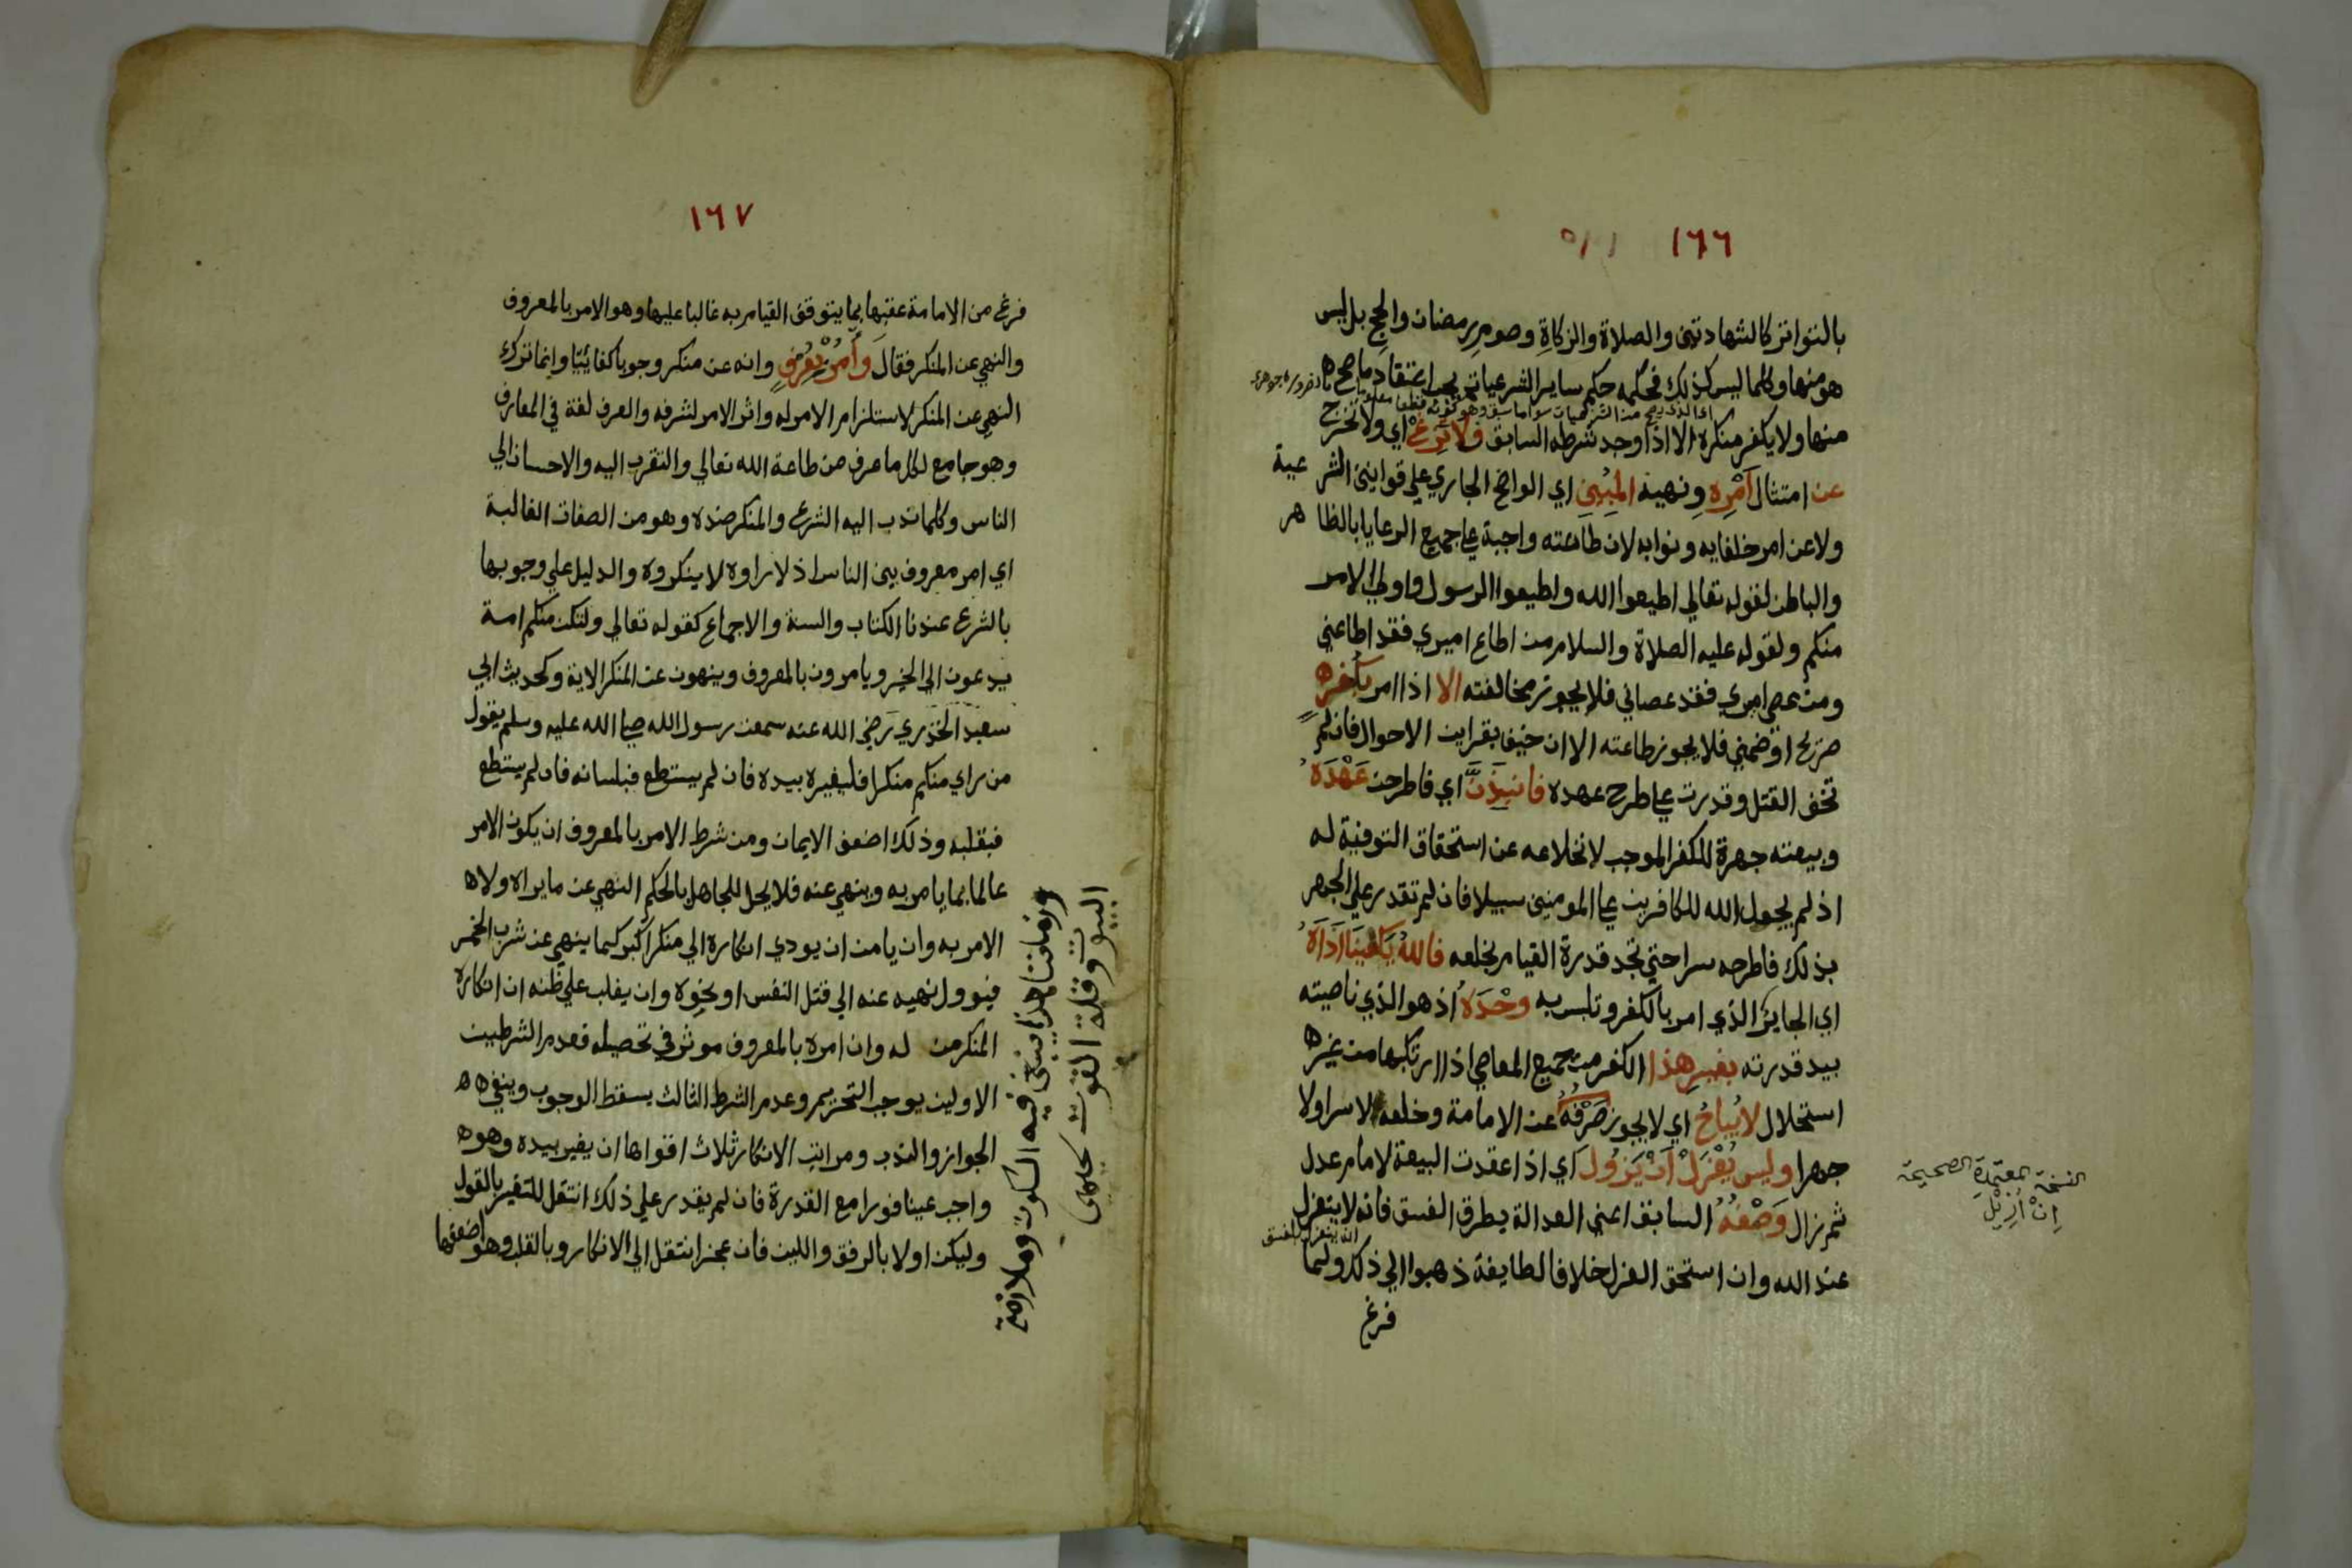 ١٦٦
بالتواتر كالشهادتين والصلاة والزكاة وصوم رمضان والحج بل ليس
هو منها وكلما ليس كذلك فحكمه حكم ساير الشرعيات يجب اعتقاد ما صح
منها ولا يكفر منكره الا اذا وجد شرطه السابق فلا تزغ اي ولا تخرج
عن امتثال أمره ونهيه المبين اي الواضح الجاري علي قوانين الشرعية
ولا عن امر خلفايه ونوابه لان طاعته واجبة علي جميع الرعايا بالظاهر
والباطن لقوله تعالي اطيعوا الله واطيعوا الرسول واولي الامر
منكم ولقوله عليه الصلاة والسلام من اطاع اميري فقد اطاعني
ومن عصي اميري فقد عصاني فلا يجوز مخالفته الا اذا امر بكفر
صريح او ضمني فلا يجوز طاعته الا ان خيف بقراين الاحوال فان لم
تخف القتل وقدرت علي طرح عهده فانبذنّ اي فاطرحن عَهْدَهُ
وبيعته جهرة للكفر الموجب لانخلاعه عن استحقاق التوفية له
اذ لم يجعل الله للكافرين علي المومنين سبيلا فان لم تقدر علي الجهر
بذلك فاطرحه سرا حتي تجد قدرة القيام بخلعه فالله يكفينا اذاهُ
اي الجاير الذي امر بالكفر وتلبس به وحْدَهُ اذ هو الذي ناصيته
بيد قدرته بغير هذا الكفر من جميع المعاصي اذا ارتكبها من غير
استحلال لا يُباحُ اي لا يجوز صَرْفُهُ عن الامامة وخلعه لا سرا ولا
جهرا وليس يُعْزَلْ أنْ يَزُولَ اي اذا عقدت البيعة لامام عدل
ثم زال وَصْفُهُ السابق اعني العدالة بطرق الفسق فانه لا ينعزل
عند الله وان استحق العزل خلافا لطايفة ذهبوا الي ذلك ولما
فرغ
النسخة المعتمدة الصحيحة
إنْ أُزِيْلَ
١٦٧
فرغ من الامامة عقبها بما يتوقف القيام به غالبا عليها وهو الامر بالمعروف
والنهي عن المنكر فقال وأمُرْ بعُرْفٍ وانه عن منكر وجوبا كفائيّا وانما ترك
النهي عن المنكر لاستلزام الامر له واثر الامر لشرفه والعرف لغة في المعارف
وهو جامع لكل ما عرف من طاعة الله تعالي والتقرب اليه والاحسان الي
الناس وكلما ندب اليه الشرع والمنكر ضده وهو من الصفات الغالبة
اي امر معروف بين الناس اذ لا راوه لا ينكروه والدليل علي وجوبها
بالشرع عندنا الكتاب والسنة والاجماع كقوله تعالي ولتكن منكم امة
يدعون الي الخير ويامرون بالمعروف وينهون عن المنكر الاية وكحديث ابي
سعيد الخدري رضي الله عنه سمعت رسول الله صلي الله عليه وسلم يقول
من راي منكم منكرا فليغيره بيده فان لم يستطع فبلسانه فان لم يستطع
فبقلبه وذلك اضعف الايمان ومن شرط الامر بالمعروف ان يكون الامر
عالما بما يامر به وينهي عنه فلا يحل للجاهل بالحكم النهي عن ما يراه ولا
الامر به وان يامن ان يودي انكاره الي منكر اكبر كما ينهي عن شرب الخمر
فيوول نهيه عنه الي قتل النفس او نحوه وان يغلب علي ظنه ان انكاره
المنكر من له وان امره بالمعروف موثر في تحصيله فعدم الشرطين
الاولين يوجب التحريم وعدم الشرط الثالث يسقط الوجوب وينفي
الجواز والندب ومراتب الانكار ثلاث اقواها ان يغير بيده وهو
واجب عينا فورا مع القدرة فان لم يقدر علي ذلك انتقل للتغير بالقول
وليكن اولا بالرفق واللين فان عجز انتقل الي الانكار وبالقلب وهو اضعفها
وزماننا هذا ينبغي فيه السكوت وملازمة
البيوت وقلة القوت